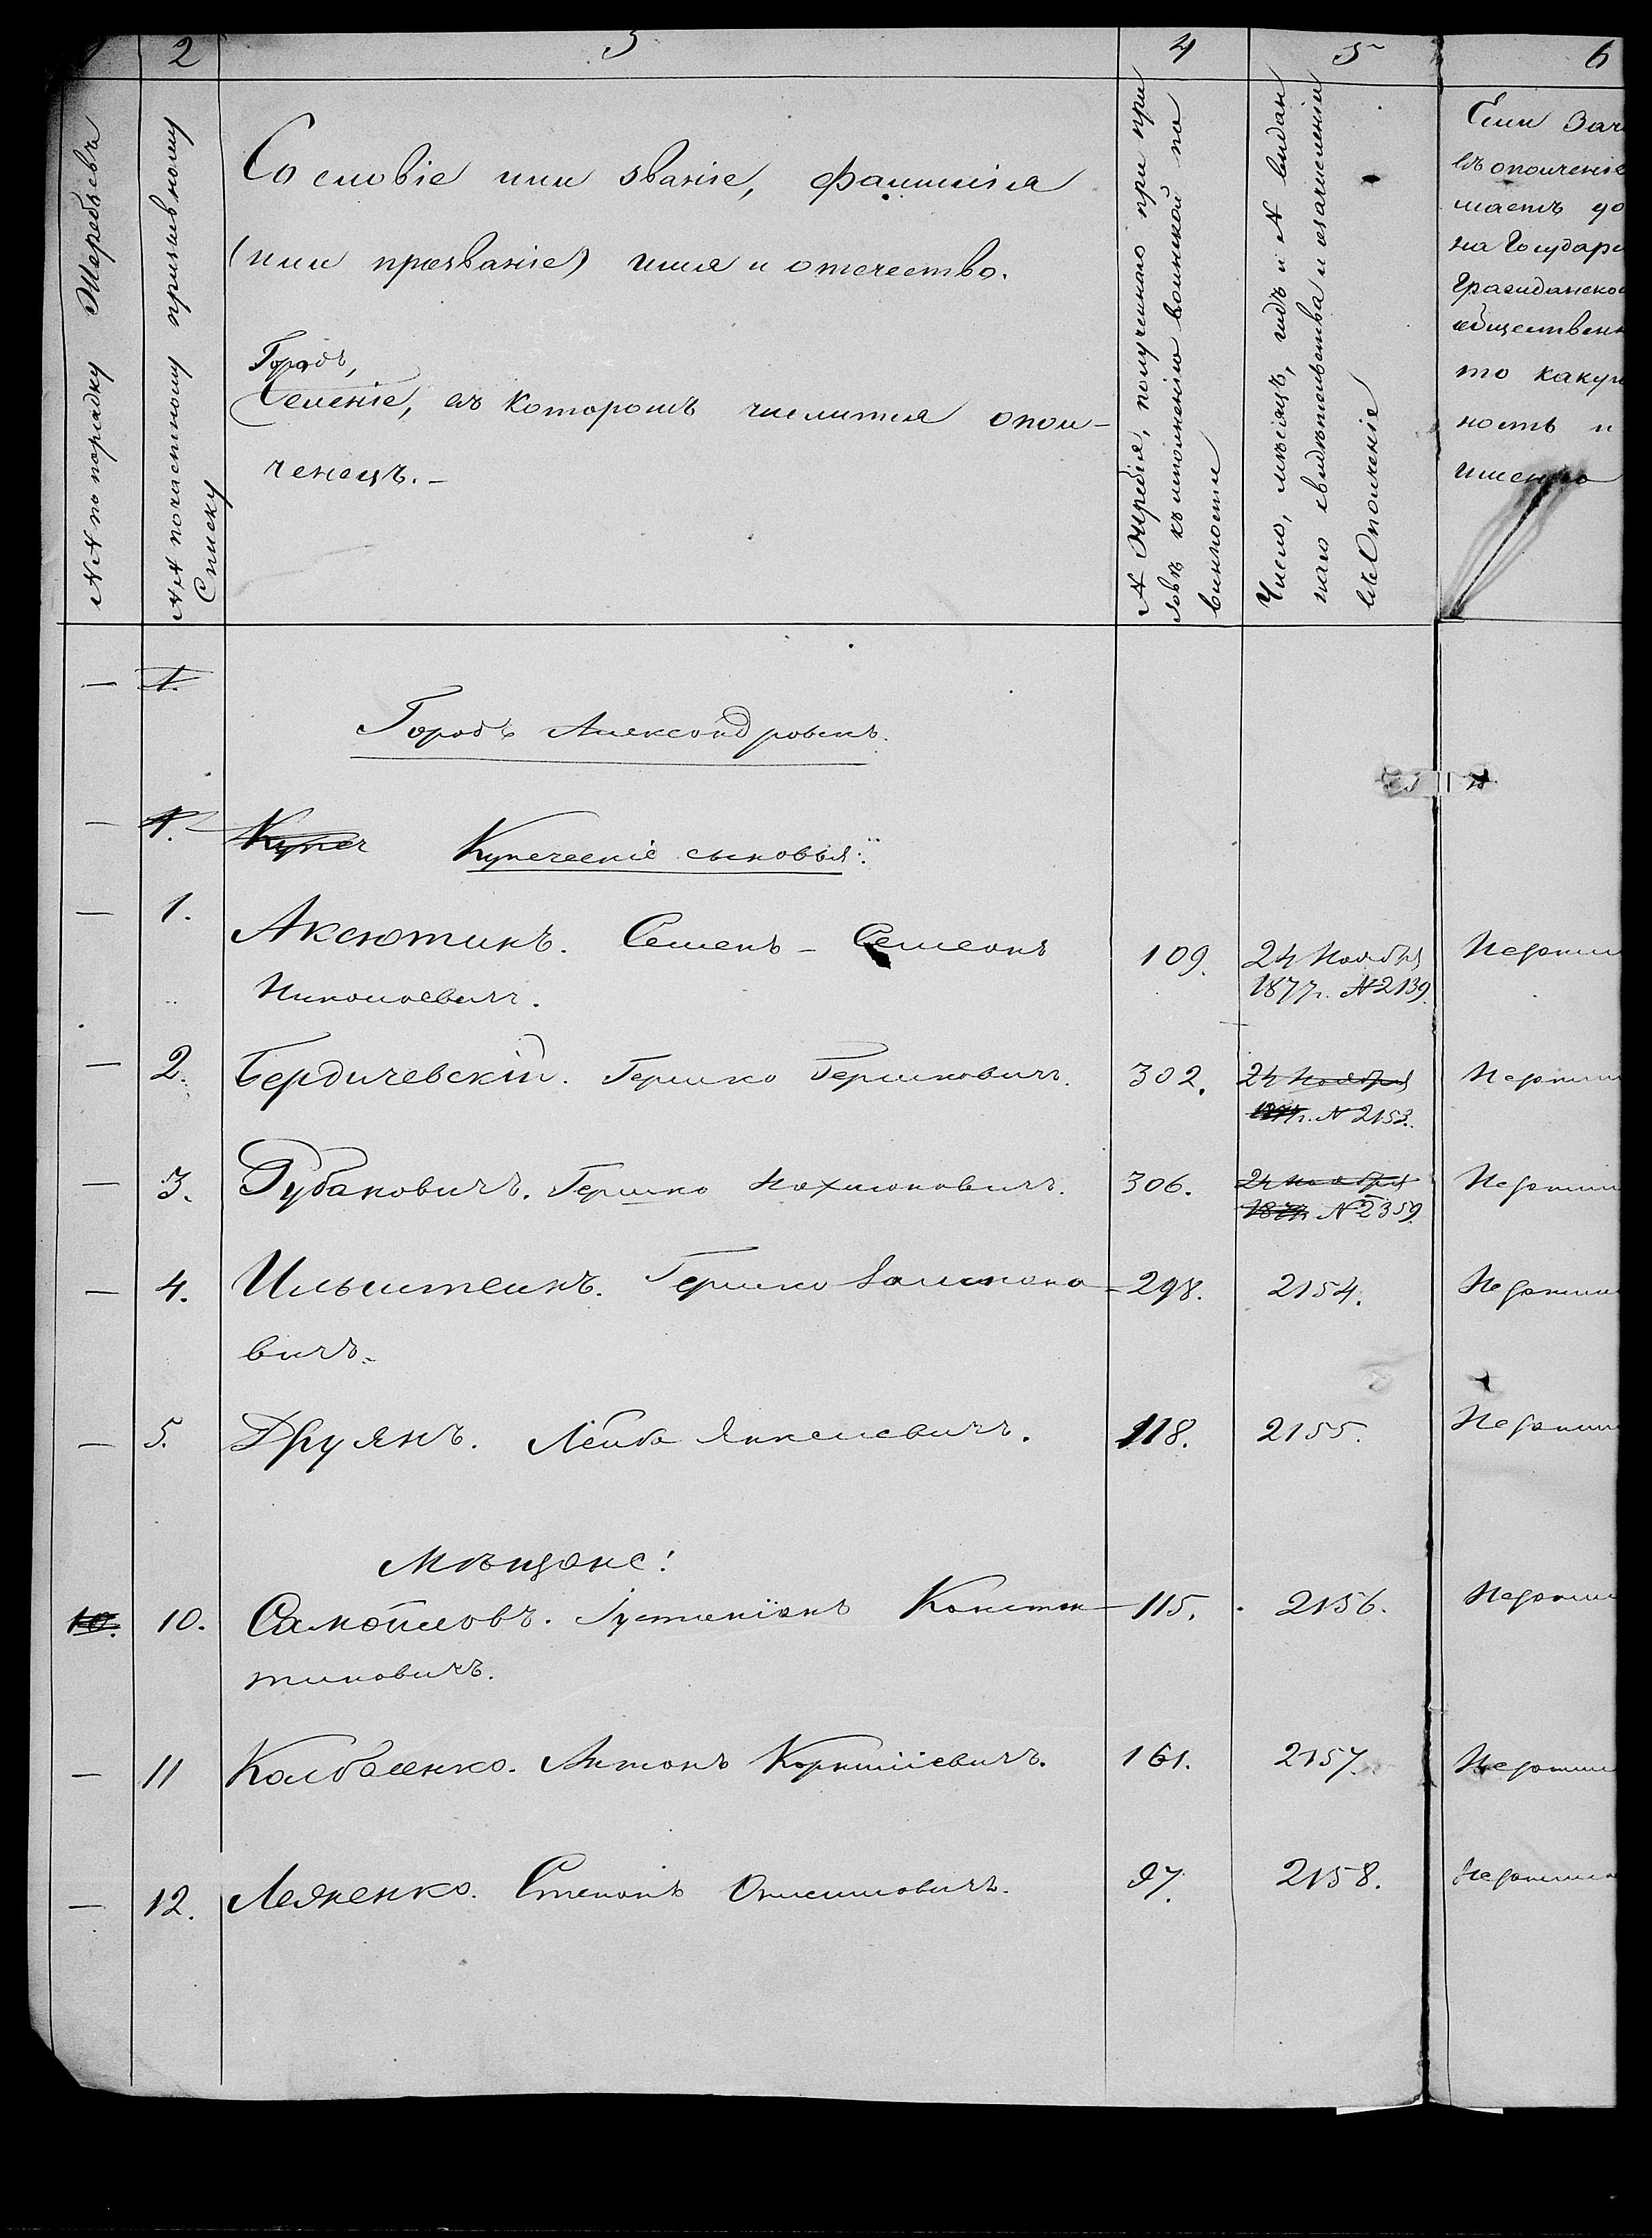 2 3 4 5 6
№№ по порядку Жеребьевъ
№№ по частному призывному
Списку
Сословіе или званіе, фамилія
(или прозваніе) имя и отечество.
Городъ,
Селеніе, въ которомъ числится опол-
ченецъ. –
№ Жребія, полученнаго при при
зывѣ къ исполненію воинской по
винности
Число, мѣсяцъ, годъ и № выдан
наго свидѣтельства и о зачисленіи
въ Ополченіе
Если Зач
въ ополченіе
маетъ до
на Государс
Гражданской
общественн
то какую
ность и
именно
— 1.
Городъ Александровскъ.
— 1. Купеч Купеческіе сыновья:
— 1. Аксютинъ. Семенъ – Симеонъ 109. 24 Ноября
Николаевичъ. 1877 г. № 2139.
— 2. Бердичевскій. Гершко Берковичъ. 302. 24 Ноября
1877 г. № 2153.
— 3. Рубановичъ. Гершко Нохимоновичъ. 306. 24 ноября
1877 № 2359.
— 4. Ильштеинъ. Гершко Залмоно- 298. 2154.
вичъ.
— 5. Друянъ. Лейба Янкелевичъ. 118. 2155.
Мѣщане:
10. 10. Самойловъ. Іустиніанъ Констан- 115. 2156.
тиновичъ.
— 11 Колбасенко. Антонъ Корниліевичъ. 161. 2157.
— 12. Ляненко. Степанъ Онисимовичъ. 97. 2158.